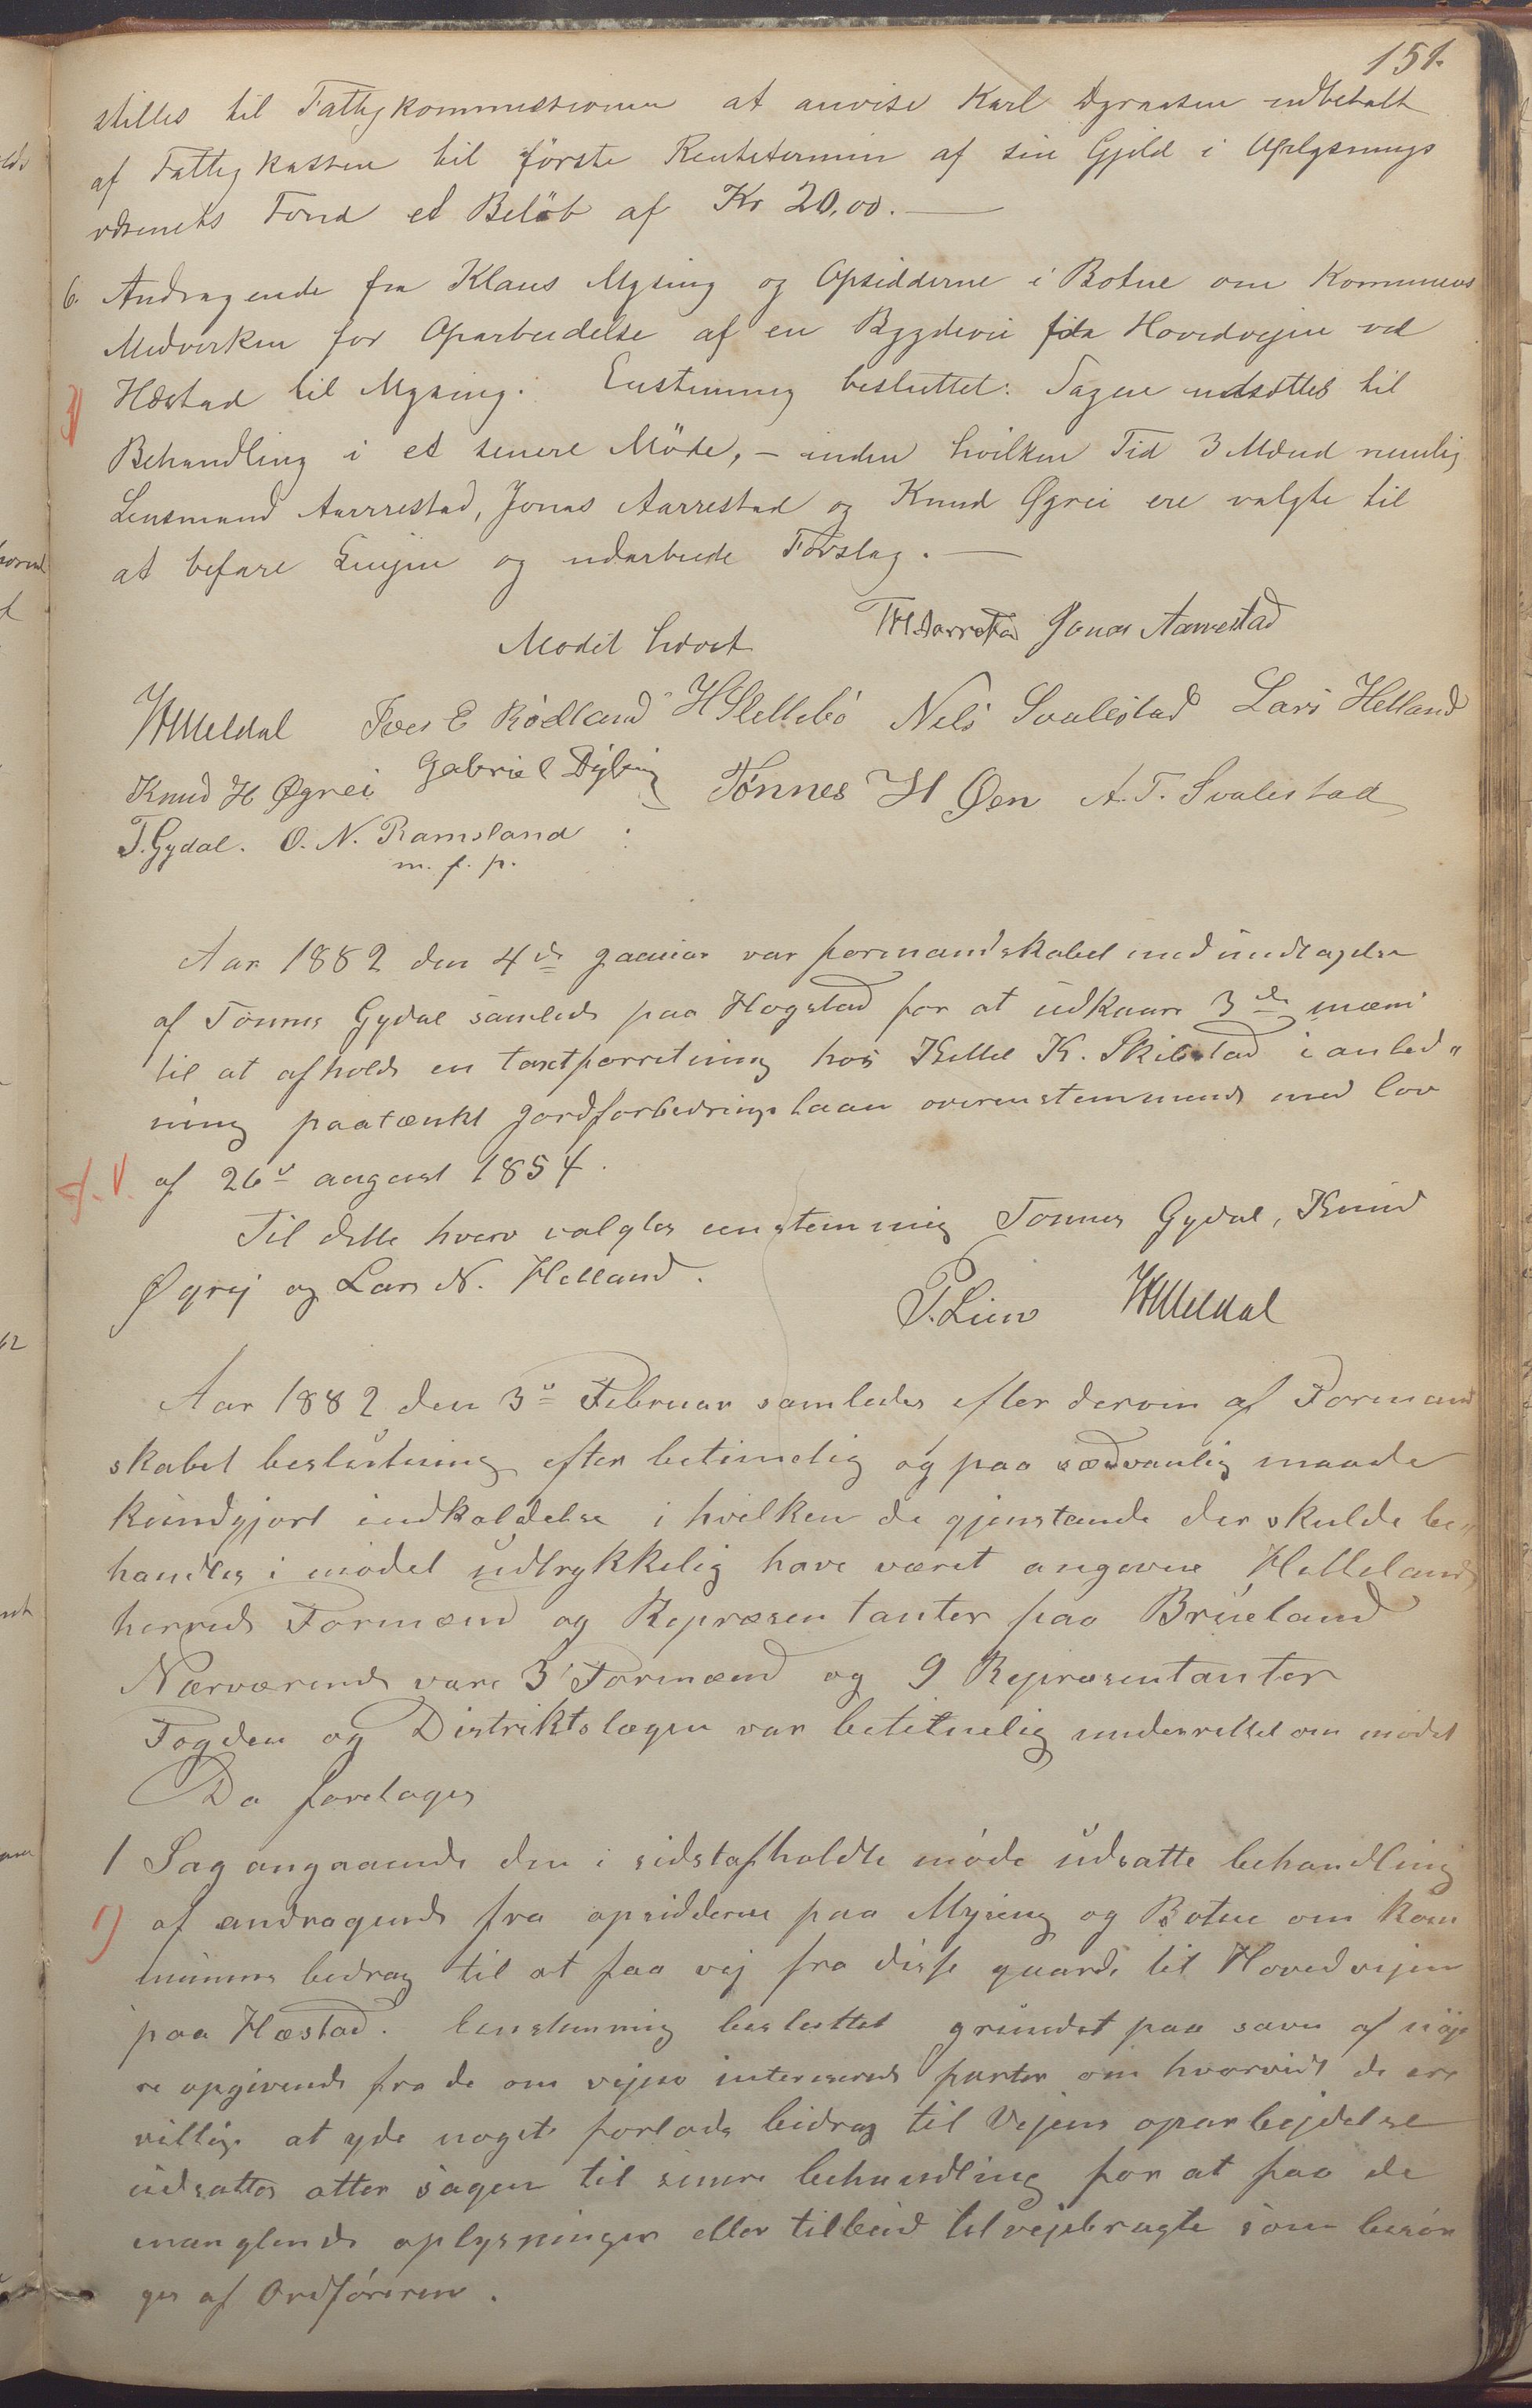 151.
stilles til Fattigkommissionen at anvise Karl Dyrnesen udbetalt
af Fattigkassen til første Rentetermin af sin Gjeld i Oplysnings
væsenets Fond et Beløb af Kr 20,00. —
6. Andragende fra Klaus Mysing og Opsidderne i Botne om Kommunens
Medvirken for Oparbeidelse af en Bygdevei fra Hovedvejen ved
Hæstad til Mysing. Enstemmig besluttet: Sagen udsættes til
Behandling i et senere Møde, – inden hvilken Tid 3 Mænd nemlig
Lensmand Aarrestad, Jonas Aarrestad og Knud Øgrei ere valgte til
at befare Linjen og udarbeide Forslag. —
Mødet hævet
TH Aarrestad Jonas Aarrestad
Meldal Ives E Rødland H Slettebö Nels Svalestad Lars Helland
Knud H Øgrei Gabriel Dybing Tönnes H Øen A. T. Svalestad
T. Gydal. O. N. Ramsland
m. f. p.
Aar 1882 den 4de Januar var formandskabet med undtagelse
af Tönnes Gydal samlede paa Hogstad for at udkaare 3de mænd
til at afholde en taxtforretning hos Kittel K. Skibstad i anled„
ning paatænkt jordforbedringslaan overenstemmende med lov
af 26de august 1854.
Til dette hverv valgtes eenstemmig Tonnes Gydal, Knud
Øgrej og Lars N. Helland.
P. Lien Meldal
Aar 1882 den 3de Februar samledes efter derom af Formand
skabet beslutning efter betimelig og paa sædvanlig maade
kundgjort indkaldelse i hvilken de gjenstande der skulde be„
handles i mödet udtrykkelig have været angivne Hellelands
herreds Formænd og Repræsentanter paa Brueland
Nærværende vare 3 Formænd og 9 Repræsentanter
Fogden og Distriktslægen var betimelig underrettet om mödet
Da foretoges
1 Sag angaaende den i sidstafholdte möde udsatte behandling
1) af andragende fra opsidderne paa Mysing og Botne om kom
munens bedrag til at faa vej fra disse gaarde til Hovedvejen
paa Hæstad. Eenstemmig besluttet grundet paa savn af nöje
re opgivende fra de om vejen interesserede parter om hvorvidt de ere
villige at yde noget forlods bidrag til Vejens oparbejdelse
udsattes atter sagen til senere behandling for at faa de
manglende oplysninger eller tilbud tilvejebragte som besör
ges af Ordföreren.